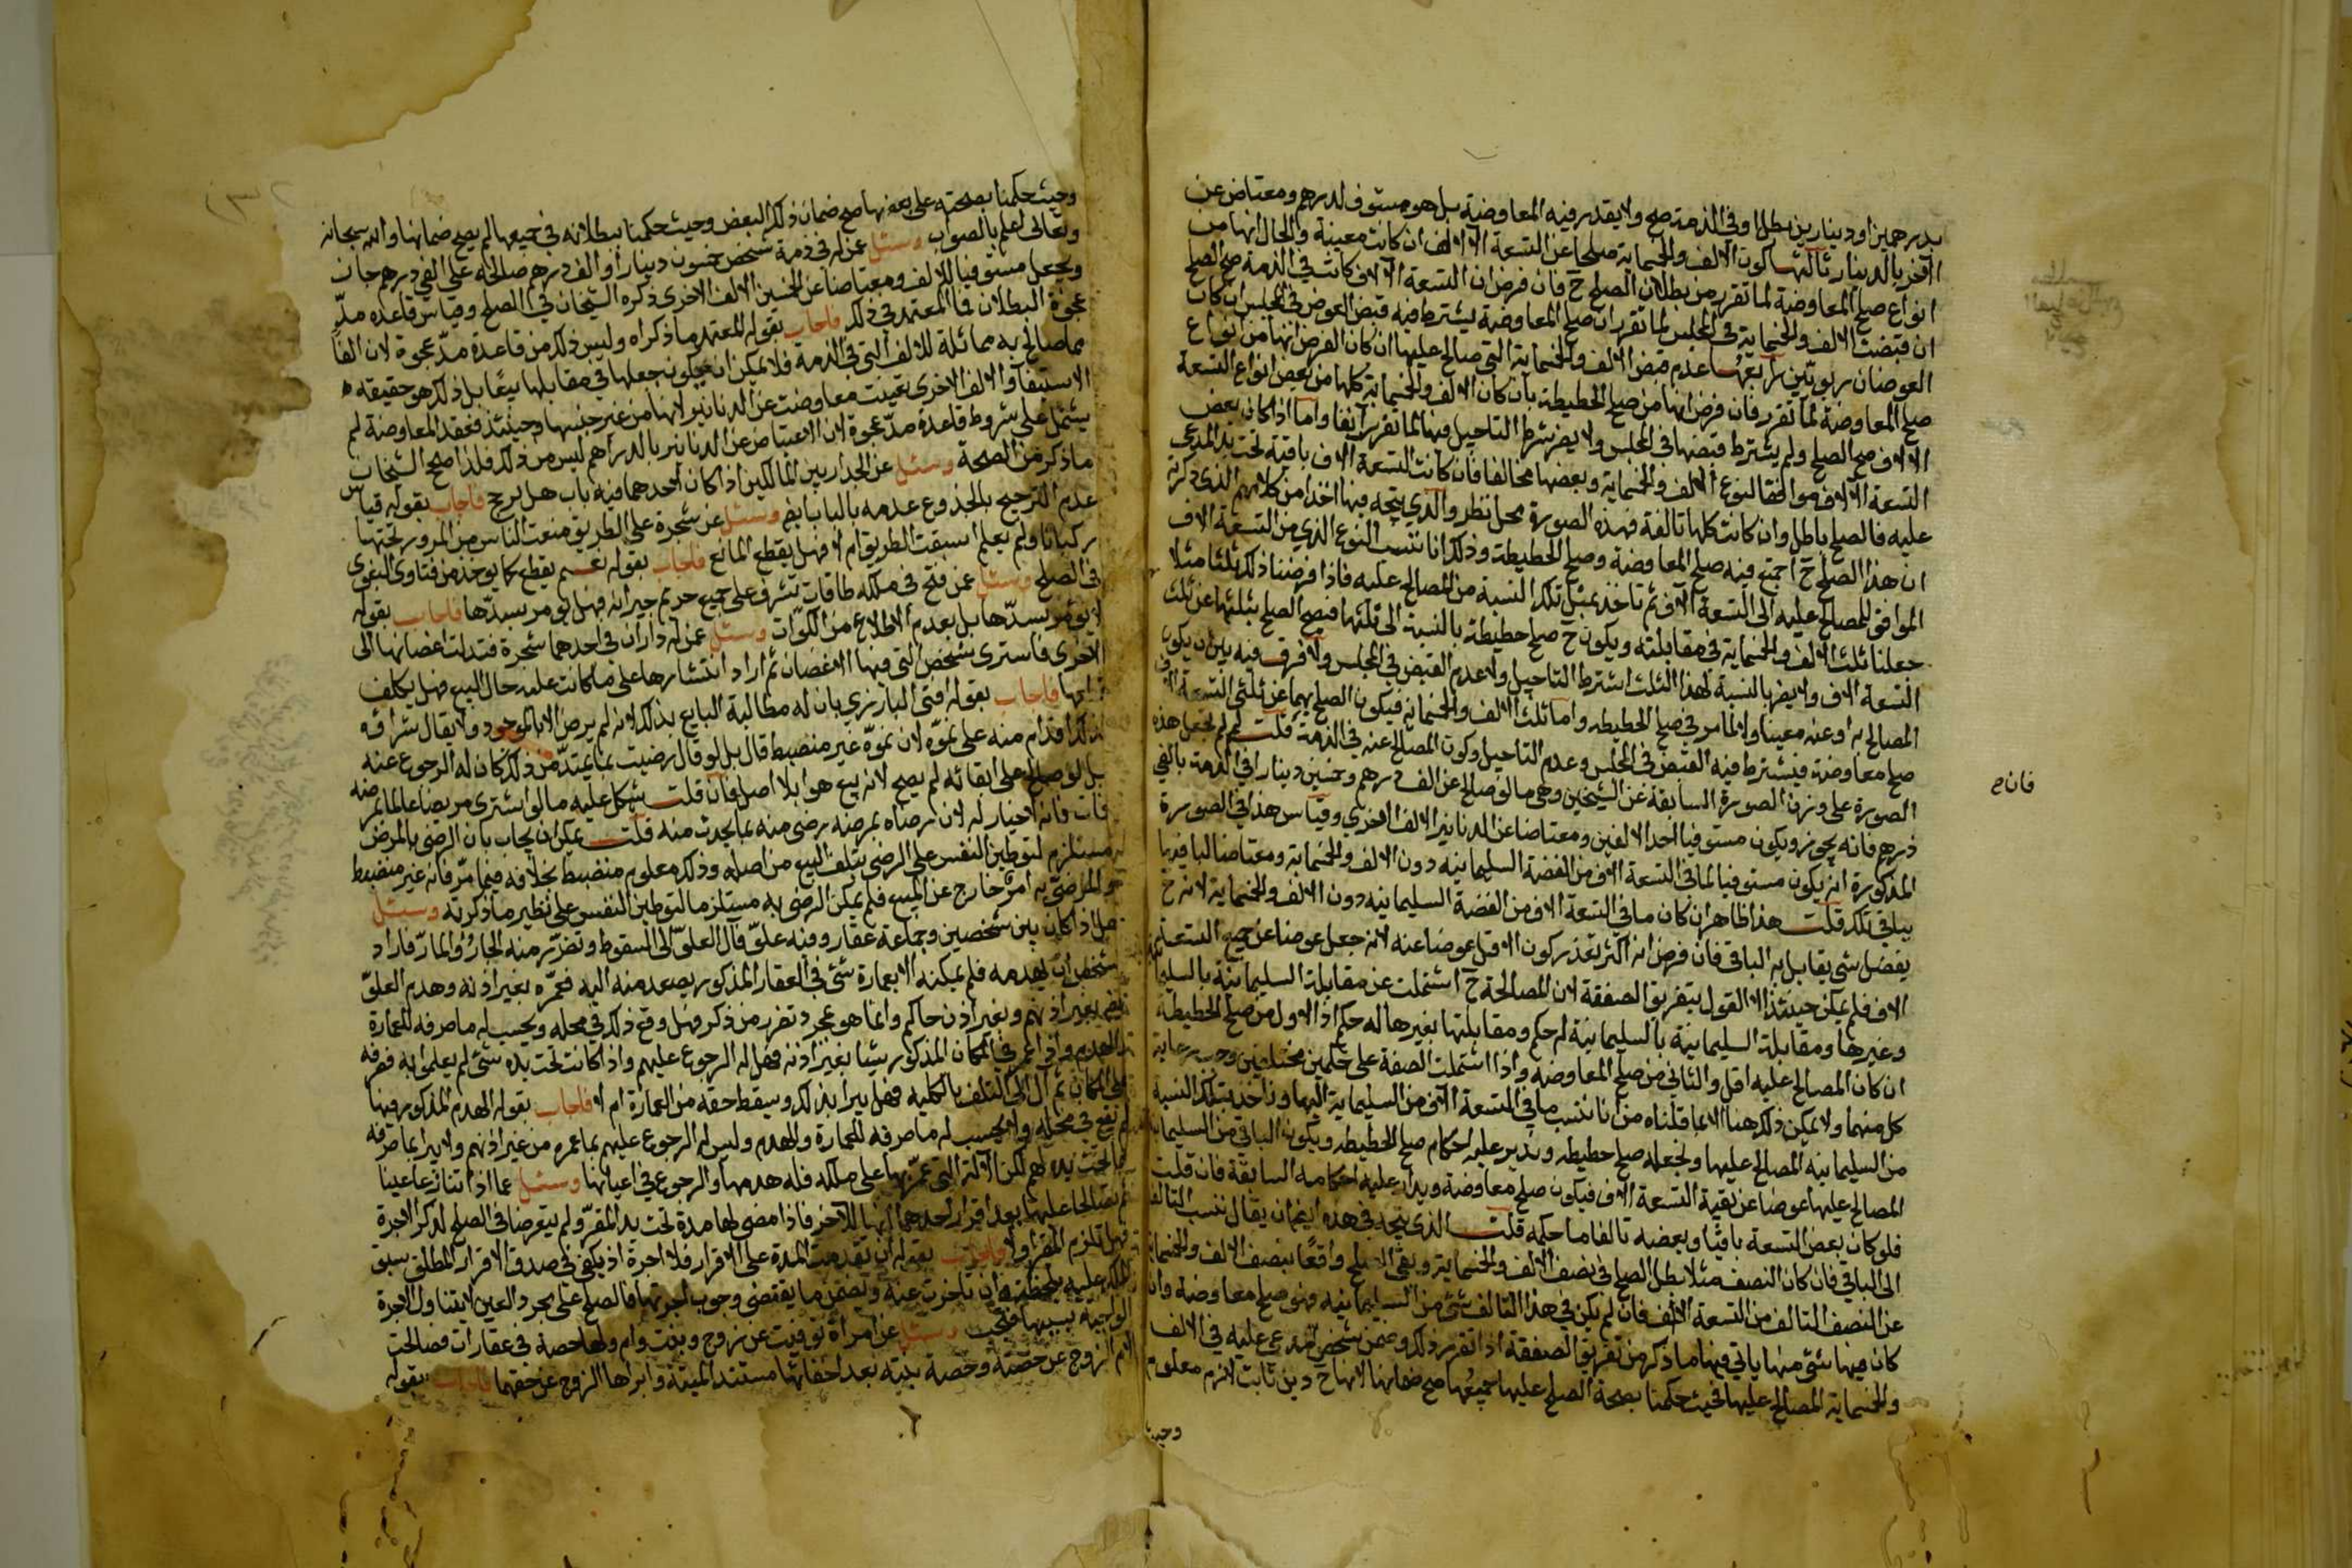 بدرهمين او دينارين بطل او في الذمة صح ولا يقدر فيه المعاوضة بل هو مستوف لدرهم ومعتاض عن
الآخر بالدينار ثالثها كون الالف والخمسماية صلحا عن التسعة الآلاف ان كانت معينة والحال انها من
انواع صلح المعاوضة لما تقرر من بطلان الصلح ح فان فرض ان التسعة الآلاف كانت في الذمة صح الصلح
ان قبضت الالف والخمسماية في المجلس لما تقرر ان صلح المعاوضة يشترط فيه قبض العوض في المجلس ان كان
العوضان ربويّين رابعها عدم قبض الالف والخمسماية التي صالح عليها ان كان الفرض انها من انواع
صلح المعاوضة لما تقرر فان فرض انها من صلح الحطيطة بان كان الالف والخمسماية كلها من بعض انواع التسعة
الالاف صح الصلح ولم يشترط قبضها في المجلس ولا يضر شرط التاجيل فيها لما تقرر آنفا واما اذا كان بعض
التسعة الآلاف موافقا لنوع الالف والخمسماية وبعضها مخالفا فان كانت التسعة آلاف باقية تحت يد المدعى
عليه فالصلح باطل وان كانت كلها تالفة فهذه الصورة محل نظر والذي يتجه فيها اخذا من كلامهم الذي ذكرته
ان هذا الصلح ح اجتمع فيه صلح المعاوضة وصلح الحطيطة وذلك انا ننسب النوع الذي من التسعة الاف
الموافق للمصالح عليه الى التسعة الاف ثم ناخذ بمثل تلك النسبة من المصالح عليه فاذا فرضنا ذلك ثلثا مثلا
جعلنا ثلث الالف والخمسماية في مقابلته ويكون ح صلح حطيطة بالنسبة الى ثلثها فيصح الصلح بثلثها عن ثلث
التسعة الاف ولا يضر بالنسبة لهذا الثلث اشترط التاجيل ولا عدم القبض في المجلس ولا فرق فيه بين ان يكون
المصالح به او عنه معينا ولا لما مر في صلح الحطيطه واما ثلثا الالف والخمسمايه فيكون الصلح بهما عن ثلثي التسعة الاف
صلح معاوضة فيشترط فيه القبض في المجلس وعدم التاجيل وكون المصالح عنه في الذمة قلت لم لم تجعل هذه
الصورة على وزن الصورة السابقة عن الشيخين وهي ما لو صالح عن الف درهم وخمسين دينارا في الذمة بالفي
درهم فانه يجوز ويكون مستوفيا احد الالفين ومعتاضا عن الدنانير الالف الاخرى وقياس هذا في الصورة
المذكورة ان يكون مستوفيا لما في التسعة الاف من الفضة السليمانيه دون الالف والخمسماية ومعتاضا لباقيها
بباقي تلك قلت هذا ظاهر ان كان ما في التسعة الاف من الفضة السليمانيه دون الالف والخمسماية لانه ح
يفضل شي يقابل به الباقي فان فرض انه اكثر تعذر كون الاقل عوضا عنه لانه جعل عوضا عن جميع التسعة
الاف فلم يمكن حينئذ الا القول بتفريق الصفقة لان المصالحة ح اشتملت عن مقابلة السليمانية بالسليمانية
وغيرها ومقابلة السليمانية بالسليمانية له حكم ومقابلتها بغيرها له حكم اذ الاول من صلح الحطيطة
ان كان المصالح عليه اقل والثاني من صلح المعاوضه واذا اشتملت الصفقة على حكمين مختلفين وجب رعاية
كل منهما ولا يمكن ذلك هنا الا بما قلناه من انا ننسب ما في التسعة الاف من السليمانية اليها وناخذ بتلك النسبة
من السليمانيه المصالح عليها ونجعله صلح حطيطه وندير عليه احكام صلح الحطيطه ويكون الباقي من السليمانية
المصالح عليها عوضا عن بقية التسعة الاف فيكون صلح معاوضة ويدار عليه احكامه السابقة فان قلت
فلو كان بعض التسعة باقيا وبعضه تالفا ما حكمه قلت الذي يتجه في هذه ايضا ان يقال ننسب التالف
الى الباقي فان كان النصف مثلا بطل الصلح في نصف الالف والخمسماية وبقي الصلح واقعا بنصف الالف والخمسماية
عن النصف التالف من التسعة الالف فان لم يكن في هذا التالف شئ من السليمانيه فهو صلح معاوضة وان
كان فيها شئ منها ياتي فيها ما ذكر من تفريق الصفقة اذا تقرر ذلك وضمن شخص المدعى عليه في الالف
والخمسماية المصالح عليها فحيث حكمنا بصحة الصلح عليها جميعها صح ضمانها لانها ح دين ثابت لازم معلوم
وحيث
فان ح
وحيث حكمنا بصحته على بعضها صح ضمان ذلك البعض وحيث حكمنا ببطلانه في جميعها لم يصح ضمانها والله سبحانه
وتعالى اعلم بالصواب وسئل عن له في ذمة شخص خمسون دينارا والف درهم صالحه على الفي درهم جاز
ويجعل مستوفيا للالف ومعتاضا عن الخمسين الالف الاخرى ذكره الشيخان في الصلح وقياس قاعده مدّ
عجوة البطلان فما المعتمد في ذلك فاجاب بقوله المعتمد ما ذكراه وليس ذلك من قاعدة مدّ عجوة لان الفا
مما صالح به مماثلة للالف التي في الذمة فلا يمكن ان يكون جعلها في مقابلها بيعًا بل ذلك هو حقيقة
الاستيفاء والالف الاخرى تعينت معاوضة عن الدنانير لانها من غير جنسها وحينئذ فعقد المعاوضة لم
يشتمل على شروط قاعدة مدّ عجوة لان الاعتياض عن الدنانير بالدراهم ليس من ذلك فلذا صحح الشيخان
ما ذكر من الصحة وسئل عن الجدار بين المالكين اذا كان لاحدهما فيه باب هل يرجح فاجاب بقوله قياس
عدم الترجيح بالجذوع عدمه بالباب ايضا وسئل عن شجرة على الطريق منعت الناس من المرور تحتها
ركبانا ولم يعلم اسبقت الطريق ام لا فهل يقطع المانع فاجاب بقوله نعم يقطع كما يوخذ من فتاوى البغوى
في الصلح وسئل عمن فتح في ملكه طاقات تشرف على جميع حريم جيرانه فهل يومر بسدّها فاجاب بقوله
لا يؤمر بسدّها بل بعدم الاطلاع من الكوّات وسئل عن له داران في احدهما شجرة فتدلت اغصانها الى
الاخرى فاشترى شخص التي فيها الاغصان ثم اراد انتشارها على ما كانت عليه حال البيع فهل يكلف
ازالتها فاجاب بقوله افتى البارزي بان له مطالبة البايع بذلك لانه لم يرض الا بالموجود ولا يقال شراؤه
لذلك اقدام منه على نموّه لان نموّه غير منضبط قال بل لو قال رضيت بما يمتدّ من ذلك كان له الرجوع عنه
بل لو صالح على ابقائه لم يصح لانه بيع هوا بلا اصل فان قلت يشكل عليه ما لو اشترى مريضا عالما بمرضه
فمات فانه لا خيار له لان رضاه بمرضه رضى منه بما يحدث منه قلت يمكن ان يجاب بان الرضى بالمرض
مستلزم لتوطين النفس على الرضى بتلف البيع من اصله وذلك معلوم منضبط بخلافه فيما مرّ فانه غير منضبط
هو المرضيّ به امر خارج عن المبيع فلم يمكن الرضى به مستلزما لتوطين النفس على نظير ما ذكرته وسئل
هل اذا كان بين شخصين وجماعة عقار وفيه علوّ فآل العلوّ الى السقوط وتضرّر منه الجار والمارّ فاراد
شخص ان يهدمه فلم يمكنه الا بعمارة شئ في العقار المذكور يصعد منه اليه فعمّره بغير اذنه وهدم العلوّ
بغير اذنهم وبغير اذن حاكم وانما هو بمجرد تضرر من ذكر فهل وقع ذلك في محله ويحسب له ما صرفه للعمارة
والهدم واذا عمر في المكان المذكور شيئا بغير اذنه فهل له الرجوع عليهم واذا كانت تحت يده شئ لم يعلموا به فصرفه
الى المكان ثم آل الى التلف بالكليه فهل يبرا بذلك ويسقط حقه من العمارة ام لا فاجاب بقوله الهدم المذكور فيها
لم يقع في محله ولا يحسب له ما صرفه للعمارة والهدم وليس له الرجوع عليهم بما عمره من غير اذنهم ولا يبرا بما صرفه
مما تحت يده لهم لكن الآلة التي عمّر بها على ملكه فله هدمها والرجوع في اعيانها وسئل عما اذا تنازعا عينا
ثم تصالحا عليها بعد اقرار احدهما انها للآخر فاذا مضى لها مدة تحت يد المقرّ ولم يتعرضا في الصلح لذكر الاجرة
فهل تلزم المقر او لا فاجاب بقوله ان تقدمت المدة على الاقرار فلا اجرة اذ يكفي في صدق الاقرار المطلق سبق
الملك عليه بلحظة وان تاخرت عنه وتضمن ما يقتضي وجوب اجرتها فالصلح على مجرد العين لا يتناول الاجرة
الواجبة بسببها فتجب وسئل عن امراة توفيت عن زوج وبنت وام ولها حصة في عقارات فصالحت
الام الزوج عن حصته وحصة بنته بعد اخفائها مستند الميتة وابراها الزوج عن حقهما فاجاب بقوله